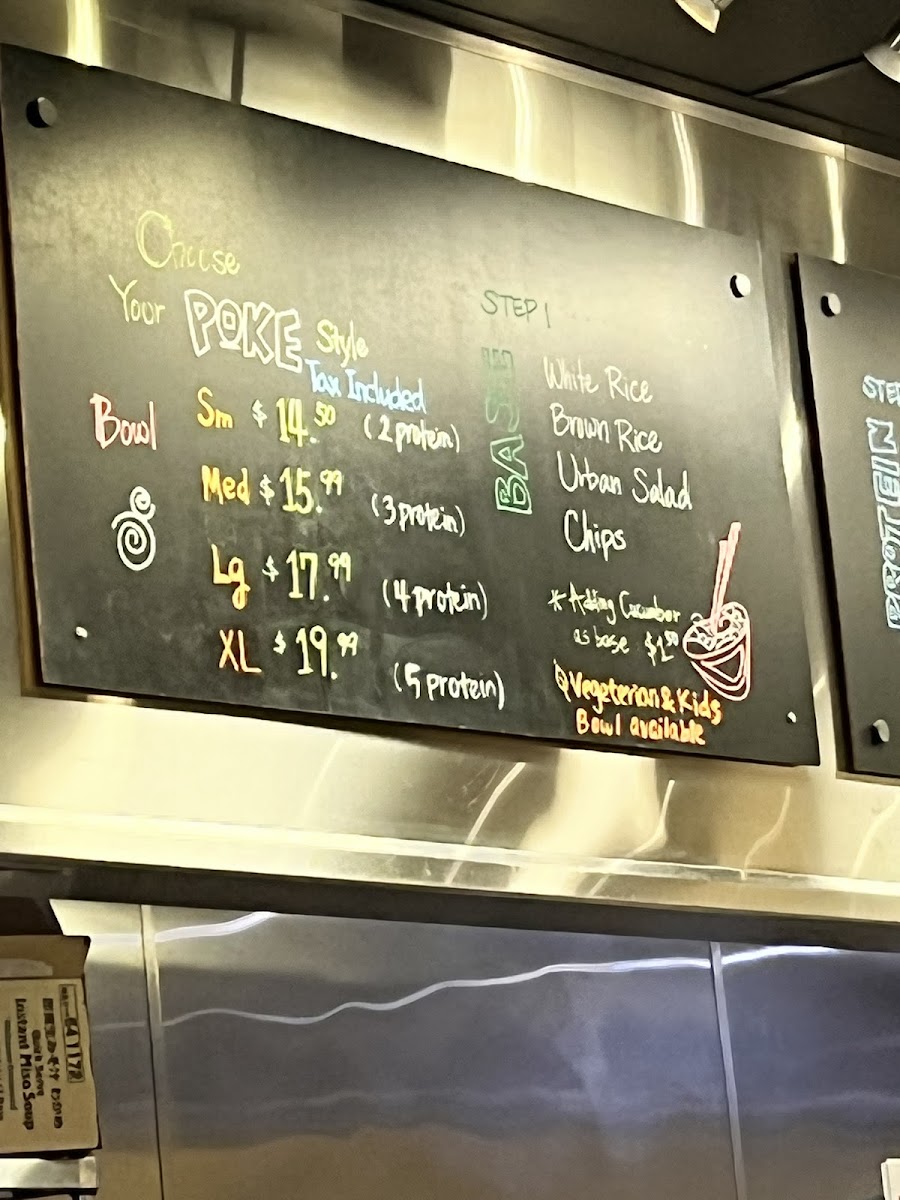 Choose
Your POKE Style
Tax Included
Bowl
Sm $14.50 (2 protein)
Med $15.99 (3 protein)
Lg $17.99 (4 protein)
XL $19.99 (5 protein)
STEP 1
BASE
White Rice
Brown Rice
Urban Salad
Chips
*Adding Cucumber
as base $1.50
Vegeterian & Kids
Bowl available
STEP
PROTEIN
Instant Miso Soup